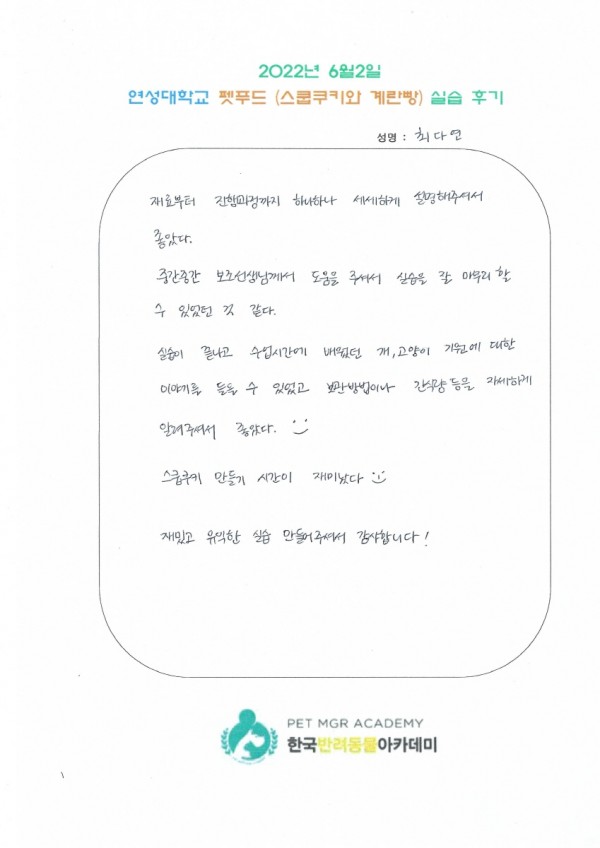 2022년 6월2일
연성대학교 펫푸드 (스쿱쿠키와 계란빵) 실습 후기
성명 : 최다연
재료부터 진행과정까지 하나하나 세세하게 설명해주셔서
좋았다.
중간중간 보조선생님께서 도움을 주셔서 실습을 잘 마무리 할
수 있었던 것 같다.
실습이 끝나고 수업시간에 배웠던 개, 고양이 기원에 대한
이야기를 들을 수 있었고 보관방법이나 간식량 등을 자세하게
알려주셔서 좋았다. :)
스쿱쿠키 만들기 시간이 재미났다 :)
재밌고 유익한 실습 만들어주셔서 감사합니다!
PET MGR ACADEMY
한국반려동물아카데미